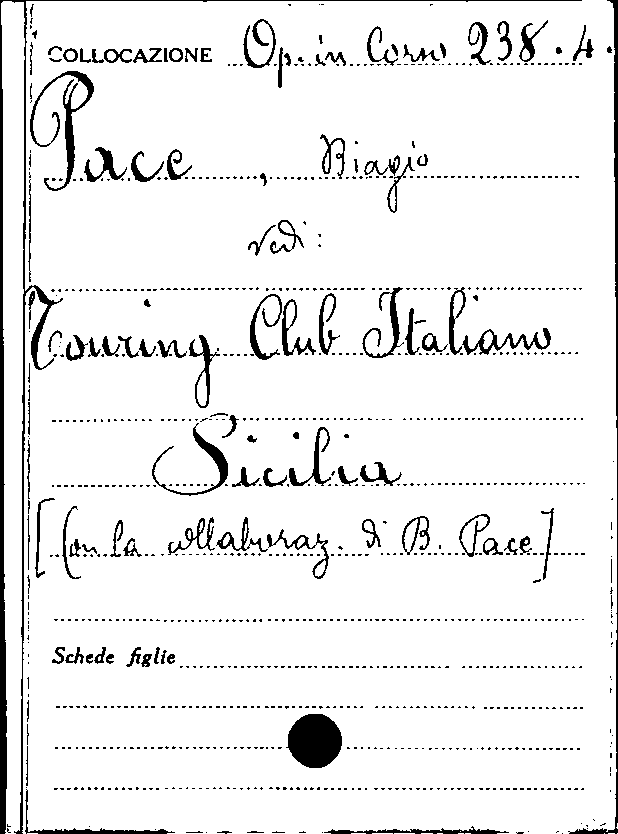 COLLOCAZIONE Op. in Corso 238.4.
Pace, Biagio
vedi:
Touring Club Italiano
Sicilia
[Con la collaboraz. di B. Pace]
Schede figlie